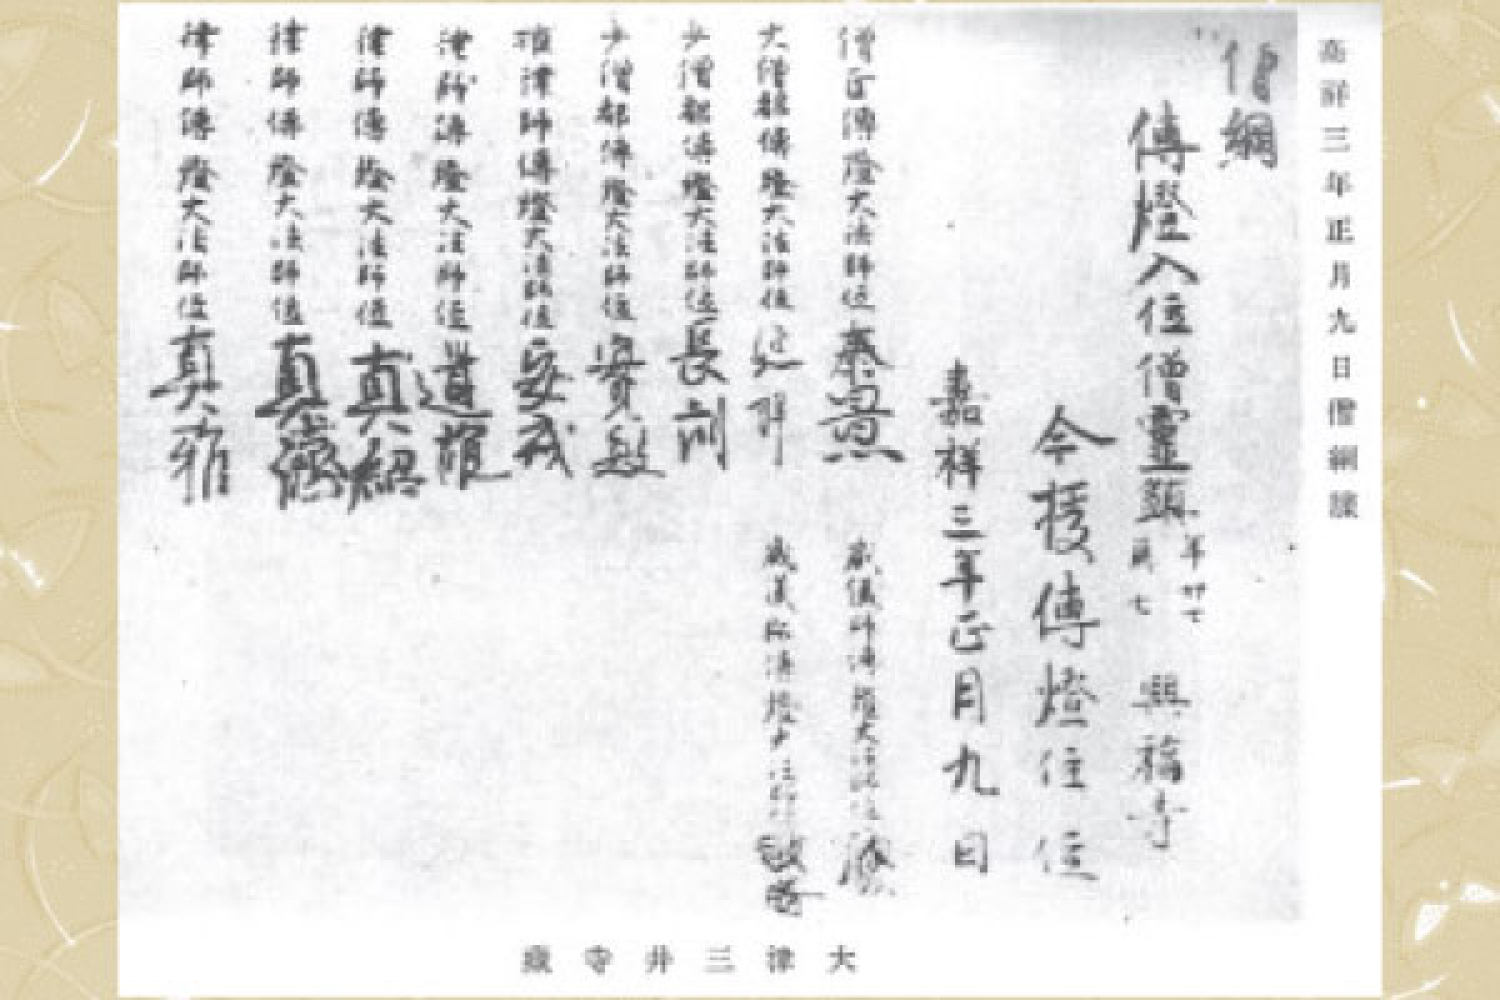 嘉祥三年正月九日僧綱牒
僧綱
傳燈入位僧靈 年卅七 﨟七 興福寺
今授傳燈住位
嘉祥三年正月九日
僧正傳燈大法師位泰景
威儀師傳燈大法師位
大僧都傳燈大法師位延祥
威儀師傳燈大法師位
少僧都傳燈大法師位長訓
少僧都傳燈大法師位實敏
權律師傳燈大法師位安戒
律師傳燈大法師位道雄
律師傳燈大法師位真紹
律師傳燈大法師位真濟
律師傳燈大法師位真雅
大津三井寺蔵